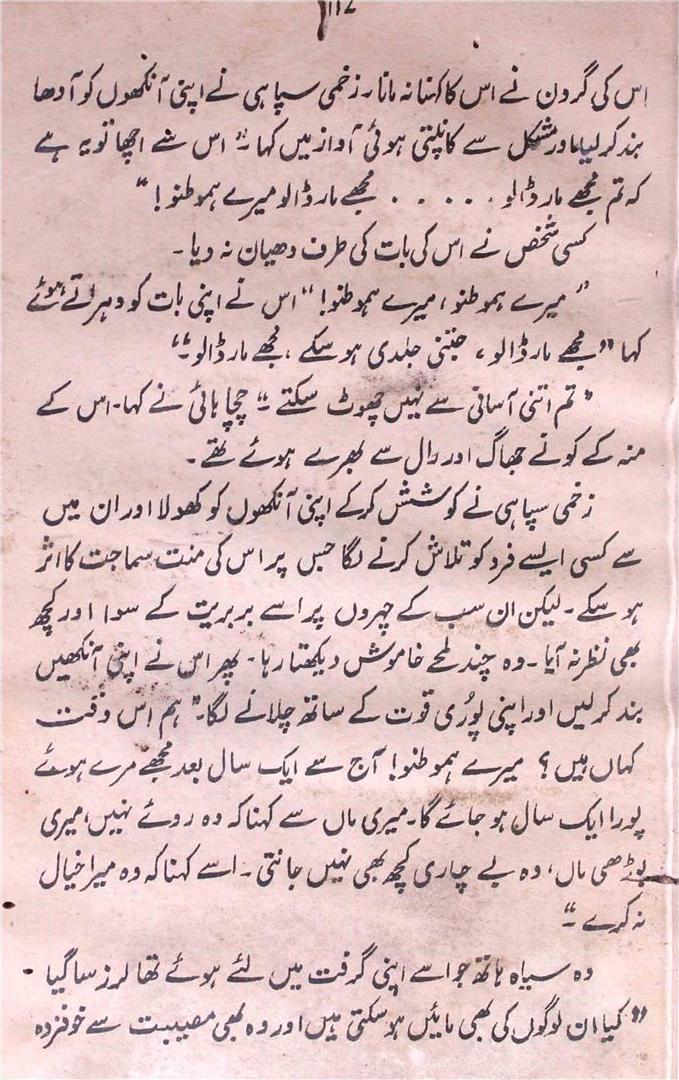 117
اس کی گردن نے اس کا کہنا نہ مانا۔ زخمی سپاہی نے اپنی آنکھوں کو آدھا
بند کر لیا اور مشکل سے کانپتی ہوئی آواز میں کہا۔" اس سے اچھا تو یہ ہے
کہ تم مجھے مار ڈالو ..... مجھے مار ڈالو میرے ہموطنو! "
کسی شخص نے اس کی بات کی طرف دھیان نہ دیا۔
" میرے ہموطنو، میرے ہموطنو! " اس نے اپنی بات کو دہراتے ہوئے
کہا " مجھے مار ڈالو، جتنی جلدی ہو سکے، مجھے مار ڈالو۔"
" تم اتنی آسانی سے نہیں چھوٹ سکتے۔" چچا ہائی نے کہا۔ اس کے
منہ کے کونے جھاگ اور رال سے بھرے ہوئے تھے۔
زخمی سپاہی نے کوشش کر کے اپنی آنکھوں کو کھولا اور ان میں
سے کسی ایسے فرد کو تلاش کرنے لگا جس پر اس کی منت سماجت کا اثر
ہو سکے۔ لیکن ان سب کے چہروں پر اسے بربریت کے سوا اور کچھ
بھی نظر نہ آیا۔ وہ چند لمحے خاموش دیکھتا رہا۔ پھر اس نے اپنی آنکھیں
بند کر لیں اور اپنی پوری قوت کے ساتھ چلانے لگا۔" ہم اس وقت
کہاں ہیں؟ میرے ہموطنو! آج سے ایک سال بعد مجھے مرے ہوئے
پورا ایک سال ہو جائے گا۔ میری ماں سے کہنا کہ وہ روئے نہیں، میری
بوڑھی ماں، وہ بے چاری کچھ بھی نہیں جانتی۔ اسے کہنا کہ وہ میرا خیال
نہ کرے۔"
وہ سیاہ ہاتھ جو اسے اپنی گرفت میں لئے ہوئے تھا لرز سا گیا
" کیا ان لوگوں کی بھی مائیں ہو سکتی ہیں اور وہ بھی مصیبت سے خوفزدہ